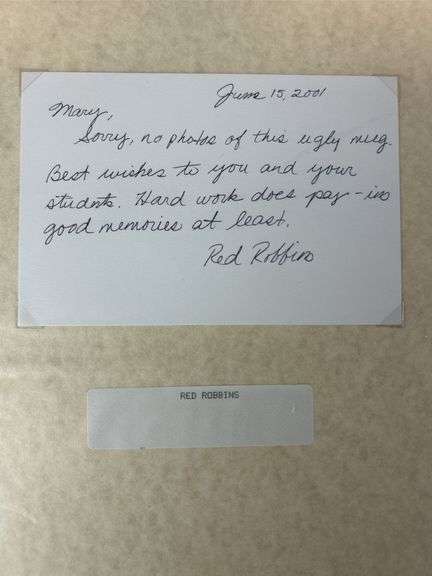 June 15, 2001
Mary,
Sorry, no photos of this ugly mug.
Best wishes to you and your
students. Hard work does pay - in
good memories at least.
Red Robbins
RED ROBBINS